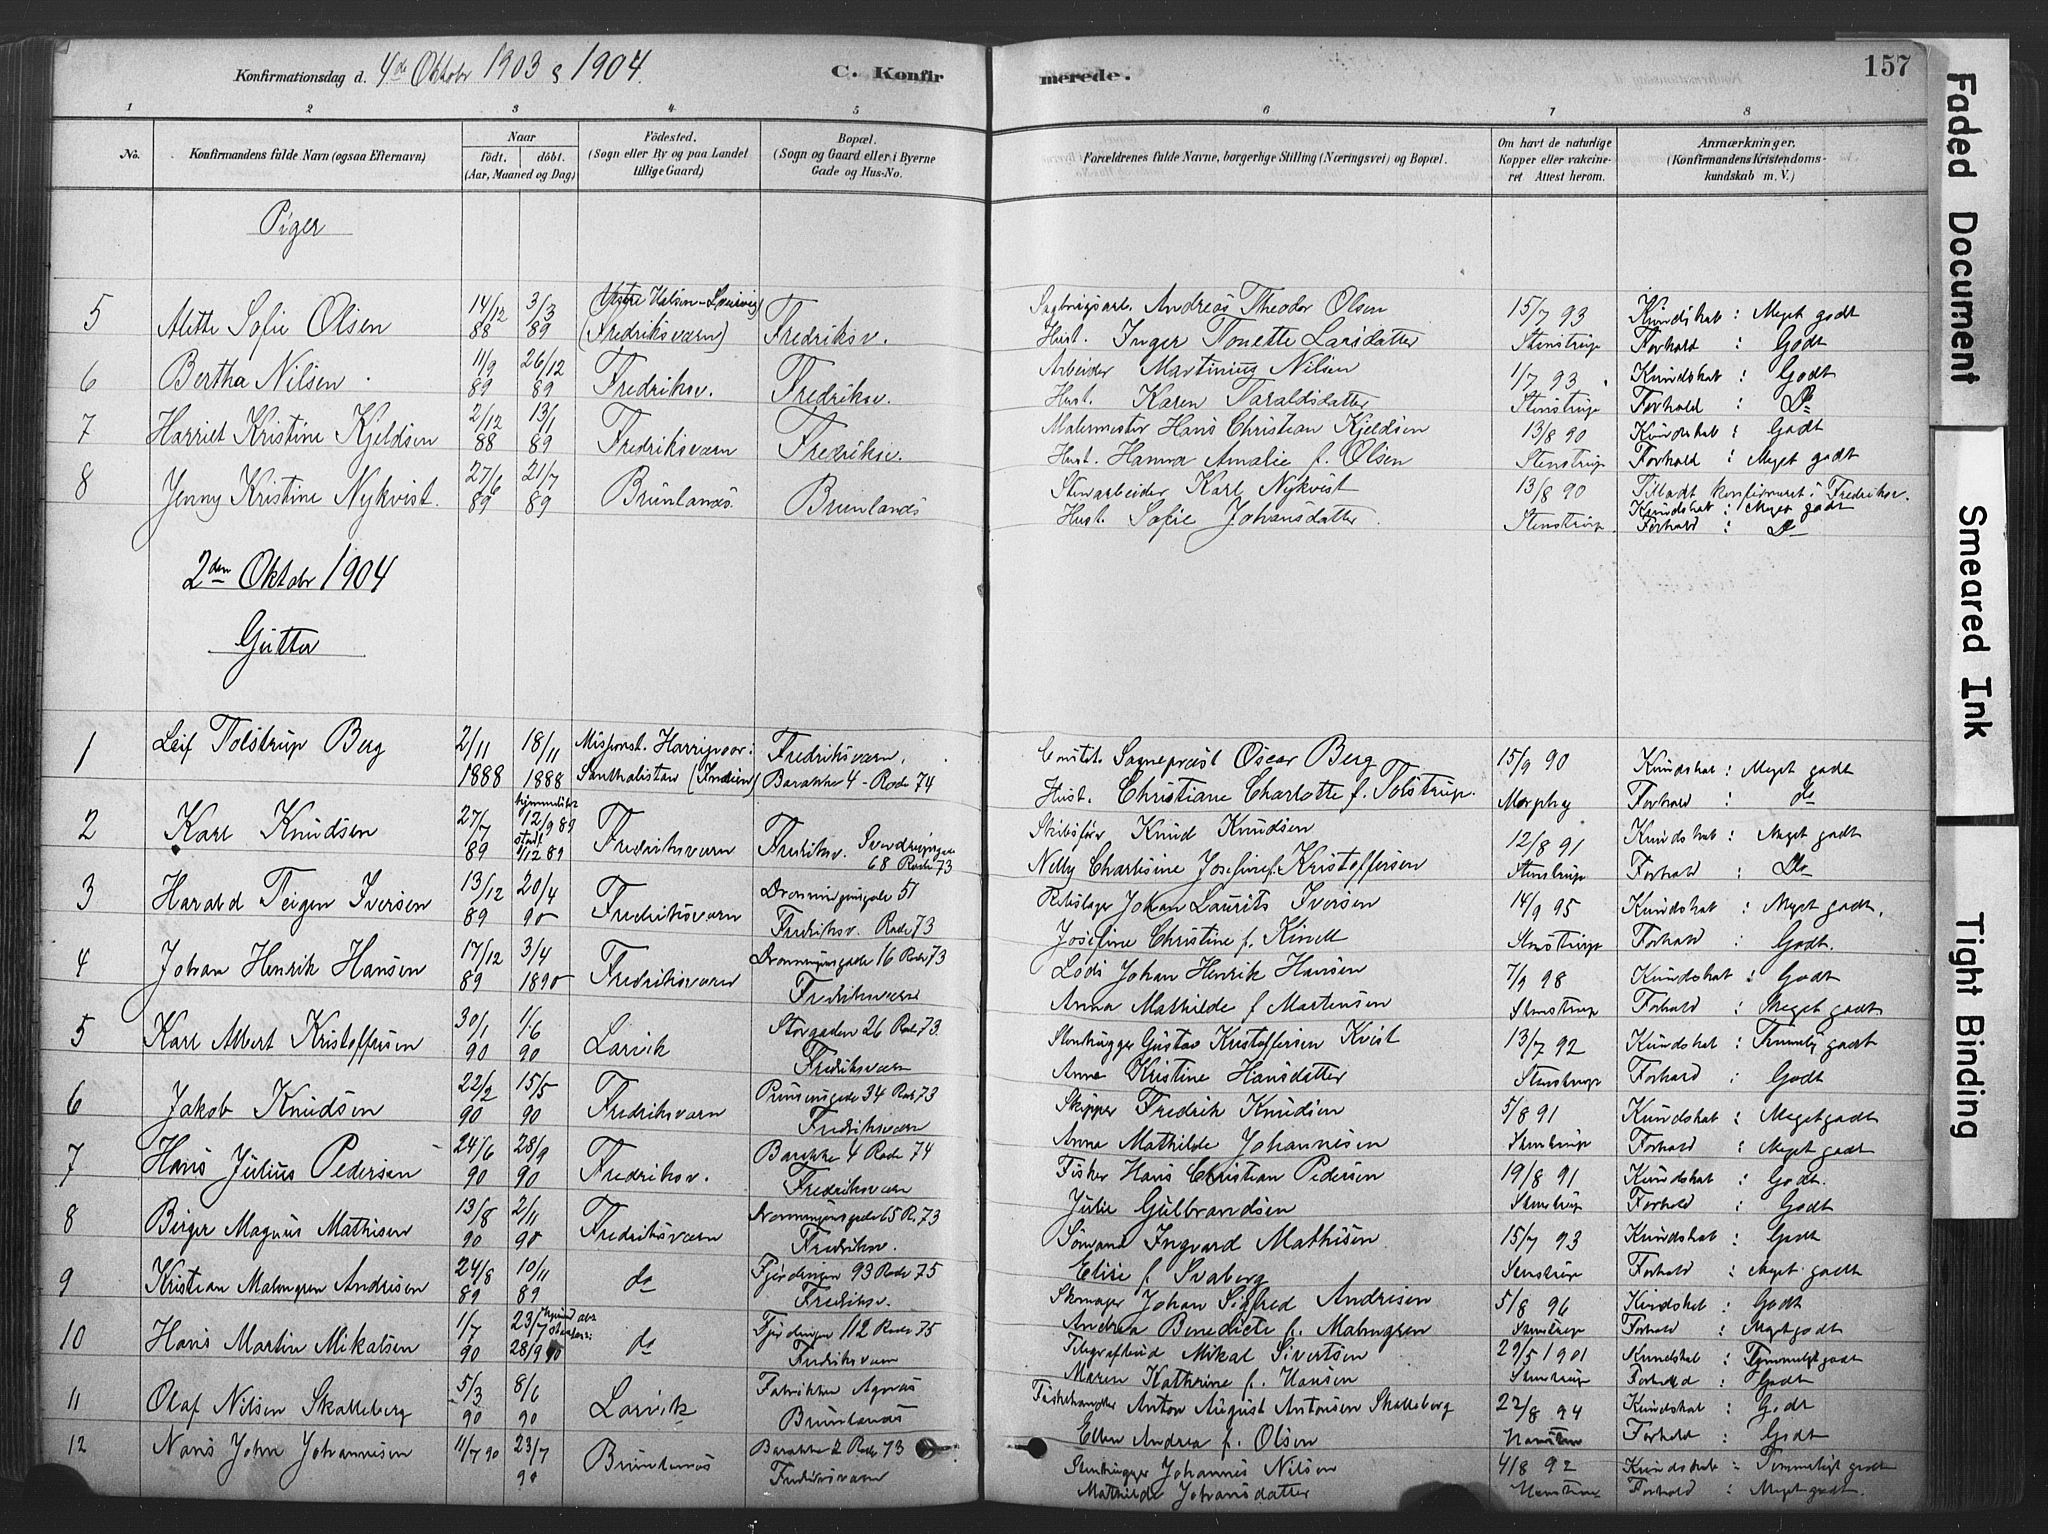 Konfirmationsdag d. 4de Oktober 1903 & 1904.
C. Konfirmerede.
157
1 2 3 4 5 6 7 8
No.
Konfirmandens fulde Navn (ogsaa Efternavn)
Naar
födt. döbt.
(Aar, Maaned og Dag)
Födested.
(Sogn eller By og paa Landet
tillige Gaard)
Bopæl.
(Sogn og Gaard eller i Byerne
Gade og Hus-No.
Forældrenes fulde Navne, borgerlige Stilling (Næringsvei) og Bopæl.
Om havt de naturlige
Kopper eller vakcine-
ret Attest herom.
Anmærkninger.
(Konfirmandens Kristendoms-
kundskab m. V.)
Piger
5 Alette Sofie Olsen 14/12 88 3/3 89 (Fredriksværn) Fredriksv. Andreas Theodor Olsen 15/7 93 Kundskab : Meget godt
Hust. Inger Tonette Larsdatter Stenstrup Forhold : Godt
6 Bertha Nilsen 11/9 89 26/12 89 Fredriksv. Fredriksv. Arbeider Martinius Nilsen 1/7 93 Kundskab : Godt
Hust. Karen Taraldsdatter Stenstrup Forhold : Do
7 Harriet Kristine Kjeldsen 2/12 88 13/1 89 Fredriksværn Fredriksv. Malermester Hans Christian Kjeldsen 13/8 90 Kundskab : Godt
Hust. Hanna Amalie f. Olsen Stenstrup Forhold : Meget godt
8 Jenny Kristine Nykvist. 27/6 89 21/7 89 Brunlanæs Brunlanæs Stenarbeider Karl Nykvist 13/8 90 Tilladt konfirmeret i Fredriksv.
Kundskab : Meget godt
Hust. Sofie Johansdatter Stenstrup Forhold : Do
2den Oktobr 1904
Gutter
1 Leif Tolstrup Berg 2/11 1888 18/11 1888 Santhalistan (Indien) Fredriksværn. Barakke 4 - Rode 74 Sogneprest Oscar Berg 15/9 90 Kundskab : Meget godt
Hust. Christiane Charlotte f. Tolstrup. Forhold : do
2 Karl Knudsen 27/7 89 12/9 89 stadf. 1/12 89 Fredriksværn Fredriksv. 68 Rode 73 Skibsförer Knud Knudsen 12/8 91 Kundskab : Meget godt
Nelly Charlesine Josefine f. Kristoffersen Stenstrup Forhold : Do
3 Harald Teigen Iversen 13/12 89 20/4 90 Fredriksværn Dronningensgade 51 Fredriksv. Rode 73 Rebslager Johan Laurits Iversen 14/9 95 Kundskab : Meget godt.
Josefine Christine f. Kinell Stenstrup Forhold : Godt.
4 Johan Henrik Hansen 17/12 89 3/4 1890 Fredriksværn Dronningensgade 16 Rode 73 Fredriksværn Lods Johan Henrik Hansen 7/9 98 Kundskab : Godt
Anna Mathilde f Martensen Stenstrup Forhold : Meget godt
5 Karl Albert Kristoffersen 30/1 90 1/6 90 Larvik Storgaden 26 Rode 73 Fredriksværn Stenhugger Gustav Kristoffersen Kvist 13/7 92 Kundskab : Temmelig godt
Anne Kristine Hansdatter Stenstrup Forhold : Godt
6 Jakob Knudsen 22/2 90 15/5 90 Fredriksværn Prinsensgade 34 Rode 73 Fredriksværn Skipper Fredrik Knudsen 5/8 91 Kundskab : Meget godt
Anna Mathilde Johannesen Stenstrup Forhold : Meget godt
7 Hans Julius Pedersen 24/6 90 28/9 90 Fredriksv. Barakke 4 Rode 74 Fredriksværn Fisker Hans Christian Pedersen 19/8 91 Kundskab : Godt.
Julie Gulbrandsen Stenstrup Forhold : Godt
8 Birger Magnus Mathisen 13/8 90 2/11 90 Fredriksværn Dronningensgade 65 Ro. 73 Fredriksv. Sömand Ingvard Mathisen 15/7 93 Kundskab : Godt
Elise f. Svaberg Stenstrup Forhold : Meget godt
9 Kristian Malmgren Andresen 24/8 89 10/11 89 do Fjerdingen 93 Rode 75 Fredriksv. Skomager Johan Sigfred Andresen 5/8 96 Kundskab : Godt
Andrea Benedicte f. Malmgren Stenstrup Forhold : Meget godt
10 Hans Martin Mikalsen 1/7 90 23/7 28/9 90 do Fjerdingen 112 Rode 75 Fredriksværn Telegrafbud Mikal Sivertsen 29/5 1901 Kundskab : Temmelig godt
Maren Kathrine f. Hansen Stenstrup Forhold : Godt
11 Olaf Nilsen Skalleberg 5/3 90 8/6 90 Larvik Fabrikken Agnæs Brunlanæs Fiskehandler Anton August Antonsen Skalleberg 22/8 94 Kundskab : Godt
Ellen Andrea f. Olsen Forhold : Godt
12 Hans John Johannesen 11/7 90 23/7 90 Brunlanæs Barakke 2 Rode 73 Fredriksværn Stenhugger Johannes Nilsen 4/8 92 Kundskab : Temmeligt godt
Mathilde Johansdatter Forhold : Meget godt.
Faded Document
Smeared Ink
Tight Binding